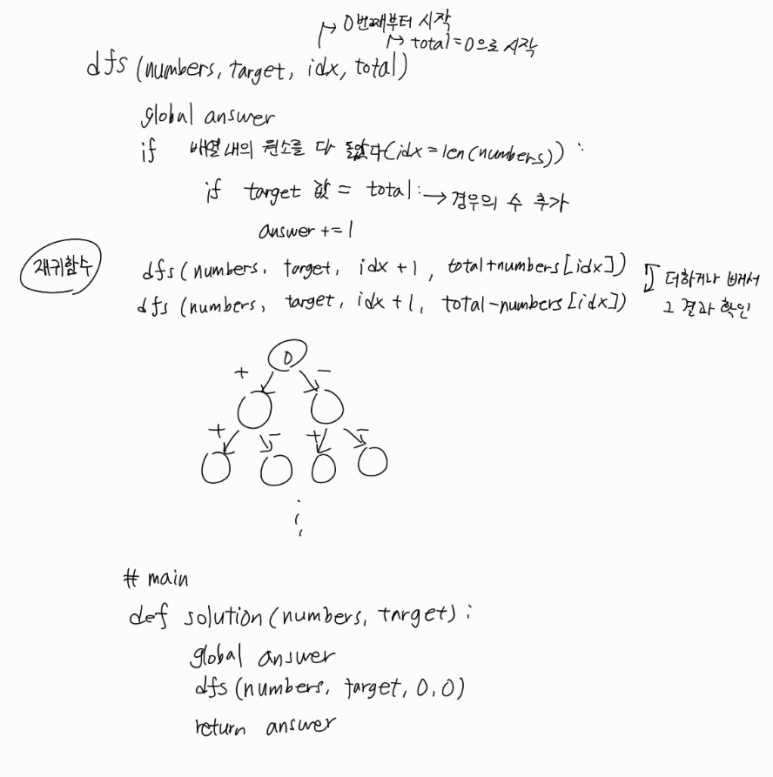 ↦ 0번째부터 시작
↦ total=0으로 시작
dfs (numbers, target, idx, total)
global answer
if 배열 내의 원소를 다 돌았다(idx=len(numbers)) :
if target 값 = total: → 경우의 수 추가
answer += 1
재귀함수
dfs(numbers, target, idx +1, total+numbers[idx])
dfs (numbers, target, idx+1, total-numbers[idx])
더하거나 빼서
그 결과 확인
0
+ -
+ - + -
# main
def solution(numbers, target):
global answer
dfs(numbers, target, 0,0)
return answer